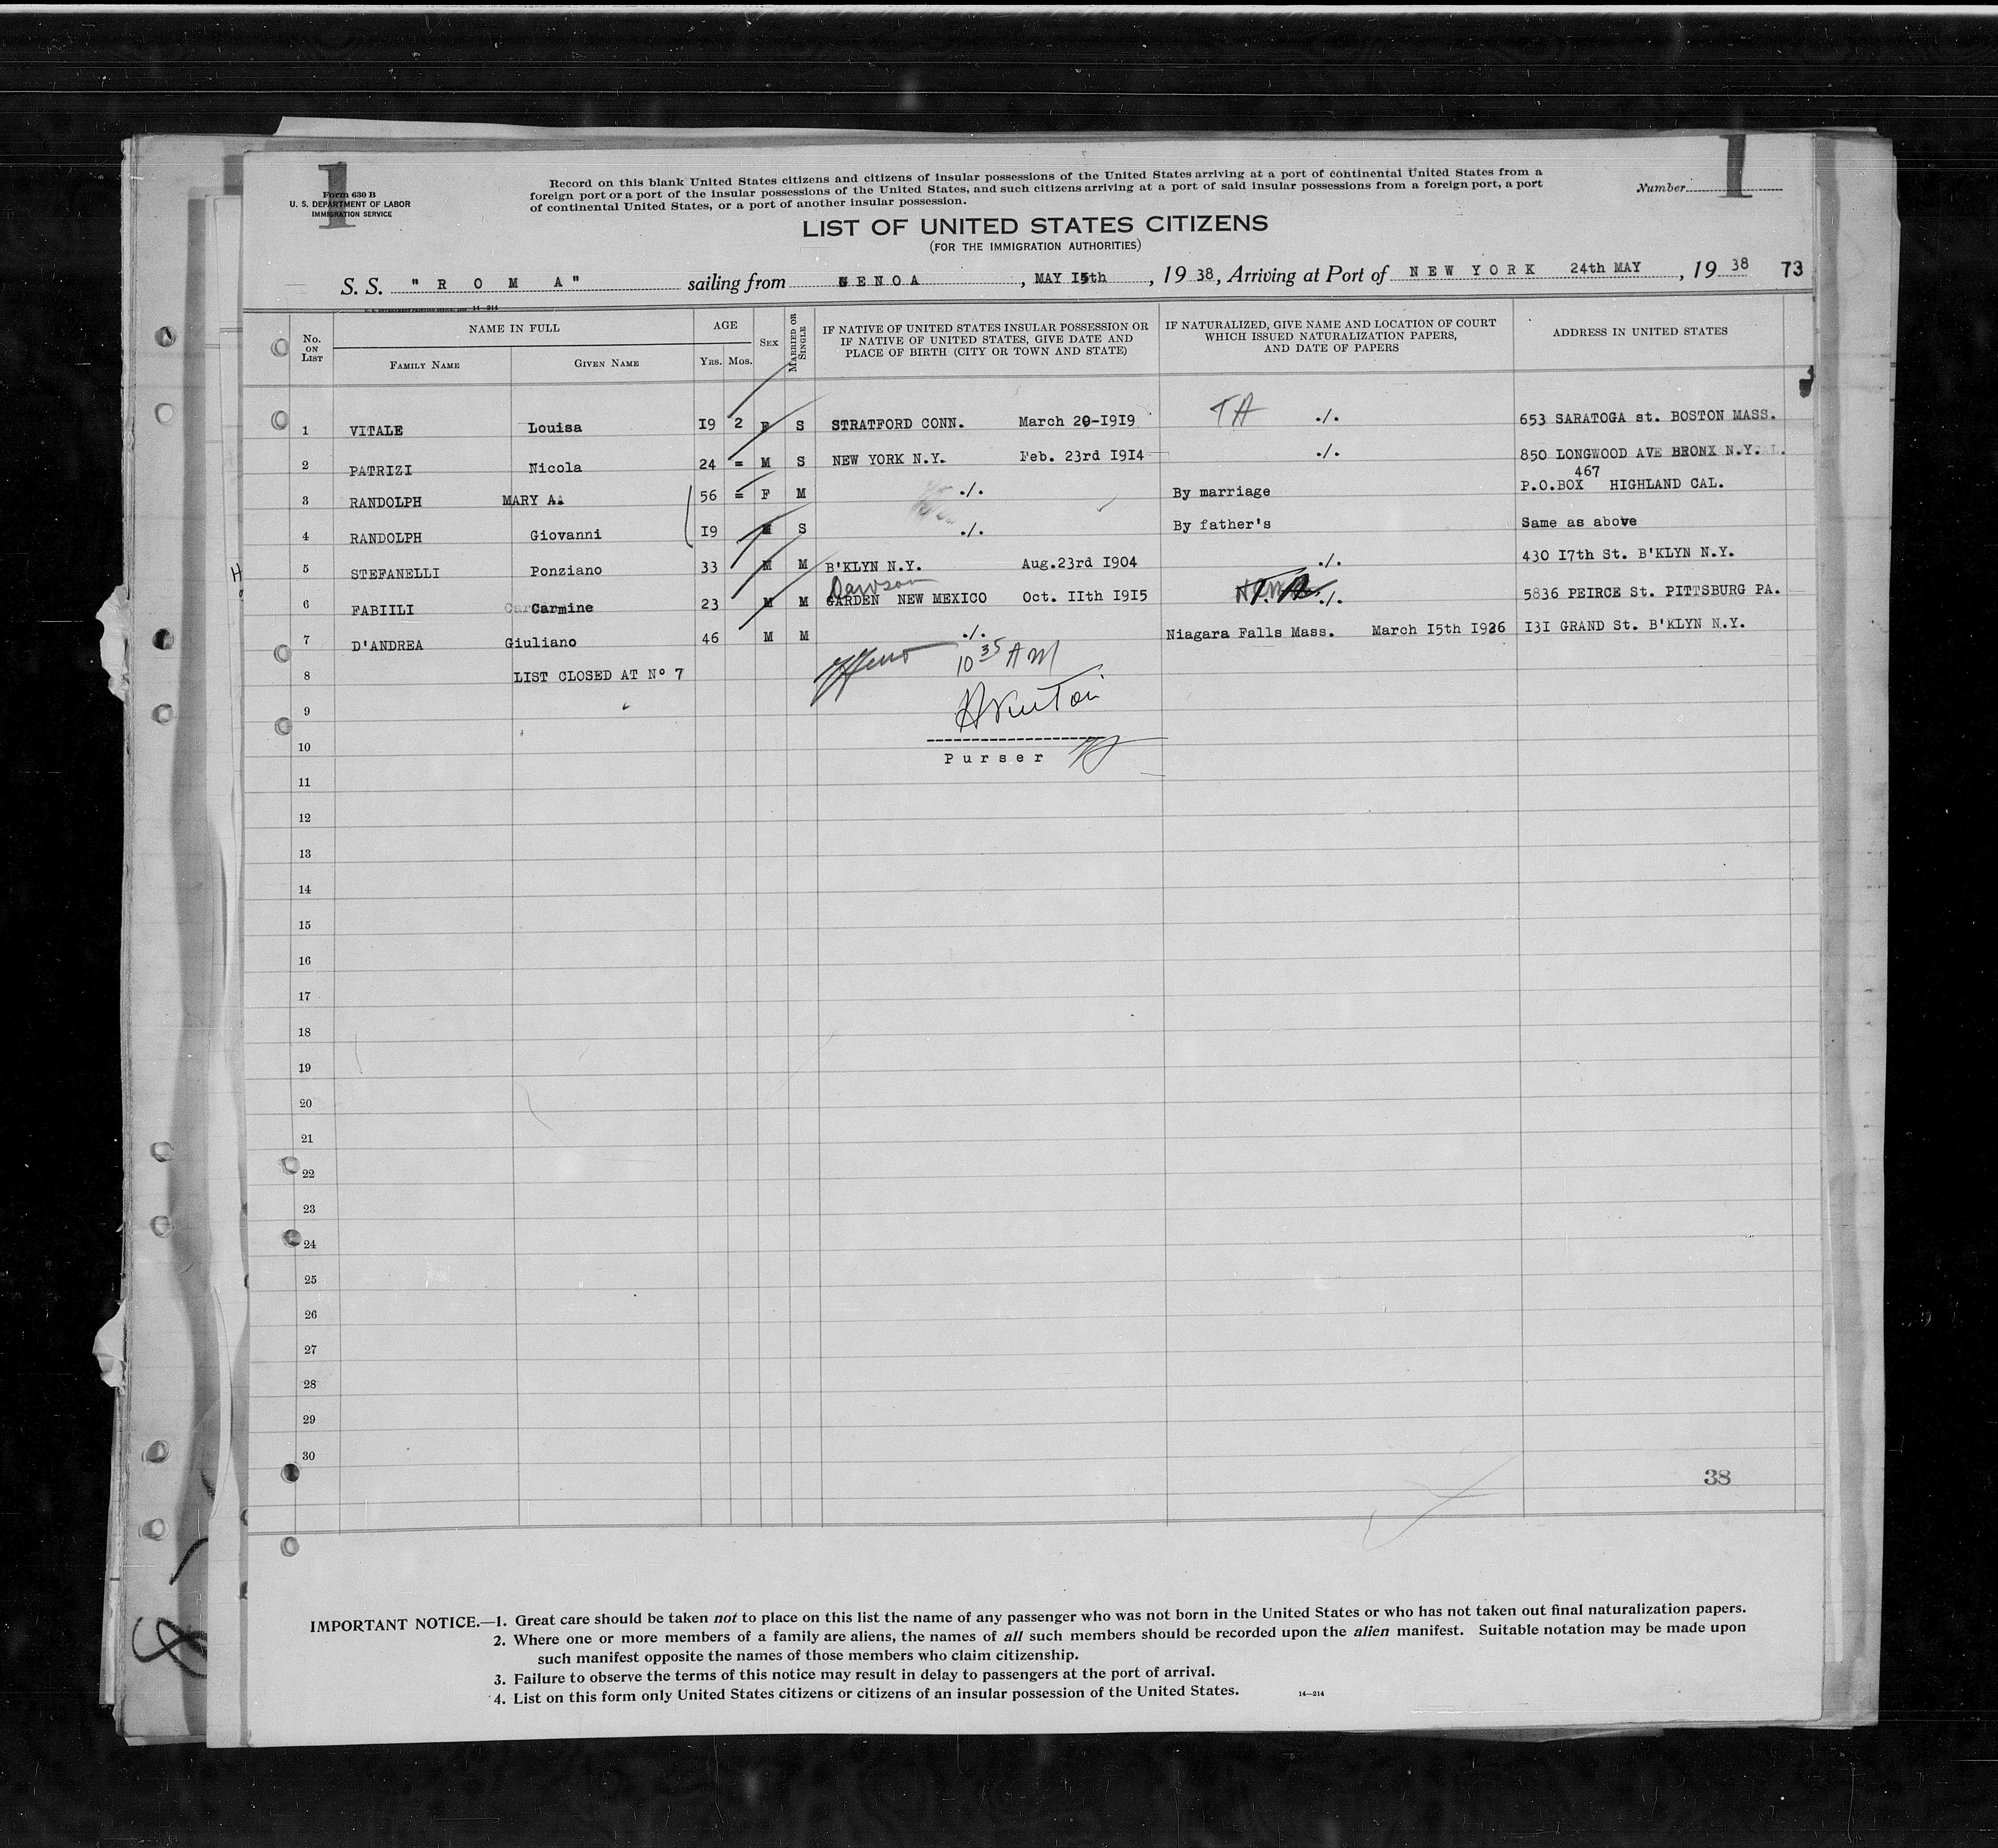 1
1
Form 630 B
U. S. DEPARTMENT OF LABOR
IMMIGRATION SERVICE
Record on this blank United States citizens and citizens of insular possessions of the United States arriving at a port of continental United States from a
foreign port or a port of the insular possessions of the United States, and such citizens arriving at a port of said insular possessions from a foreign port, a port
of continental United States, or a port of another insular possession.
Number
LIST OF UNITED STATES CITIZENS
(FOR THE IMMIGRATION AUTHORITIES)
S. S. "R O M A" sailing from GENOA, MAY I5th, 1938, Arriving at Port of NEW YORK 24th MAY, 1938 73
14—214
No. ON LIST NAME IN FULL AGE SEX MARRIED OR SINGLE IF NATIVE OF UNITED STATES INSULAR POSSESSION OR IF NATIVE OF UNITED STATES, GIVE DATE AND PLACE OF BIRTH (CITY OR TOWN AND STATE) IF NATURALIZED, GIVE NAME AND LOCATION OF COURT WHICH ISSUED NATURALIZATION PAPERS, AND DATE OF PAPERS ADDRESS IN UNITED STATES
FAMILY NAME GIVEN NAME YRS. MOS.
1 VITALE Louisa I9 2 F S STRATFORD CONN. March 20-I9I9 TA ./. 653 SARATOGA st. BOSTON MASS.
2 PATRIZI Nicola 24 = M S NEW YORK N.Y. Feb. 23rd I9I4 ./. 850 LONGWOOD AVE BRONX N.Y.
3 RANDOLPH MARY A. 56 = F M ./. By marriage P.O.BOX 467 HIGHLAND CAL.
4 RANDOLPH Giovanni I9 M S ./. By father's Same as above
5 STEFANELLI Ponziano 33 M M B'KLYN N.Y. Aug.23rd I904 ./. 430 I7th St. B'KLYN N.Y.
Dawson
6 FABIILI Carmine 23 M M GARDEN NEW MEXICO Oct. IIth I9I5 ./. 5836 PEIRCE St. PITTSBURG PA.
7 D'ANDREA Giuliano 46 M M ./. Niagara Falls Mass. March I5th I926 I3I GRAND St. B'KLYN N.Y.
8 LIST CLOSED AT Nº 7
10 35 AM
9
10
Purser
11
12
13
14
15
16
17
18
19
20
21
22
23
24
25
26
27
28
29
30
38
IMPORTANT NOTICE.—1. Great care should be taken not to place on this list the name of any passenger who was not born in the United States or who has not taken out final naturalization papers.
2. Where one or more members of a family are aliens, the names of all such members should be recorded upon the alien manifest. Suitable notation may be made upon
such manifest opposite the names of those members who claim citizenship.
3. Failure to observe the terms of this notice may result in delay to passengers at the port of arrival.
4. List on this form only United States citizens or citizens of an insular possession of the United States. 14—214